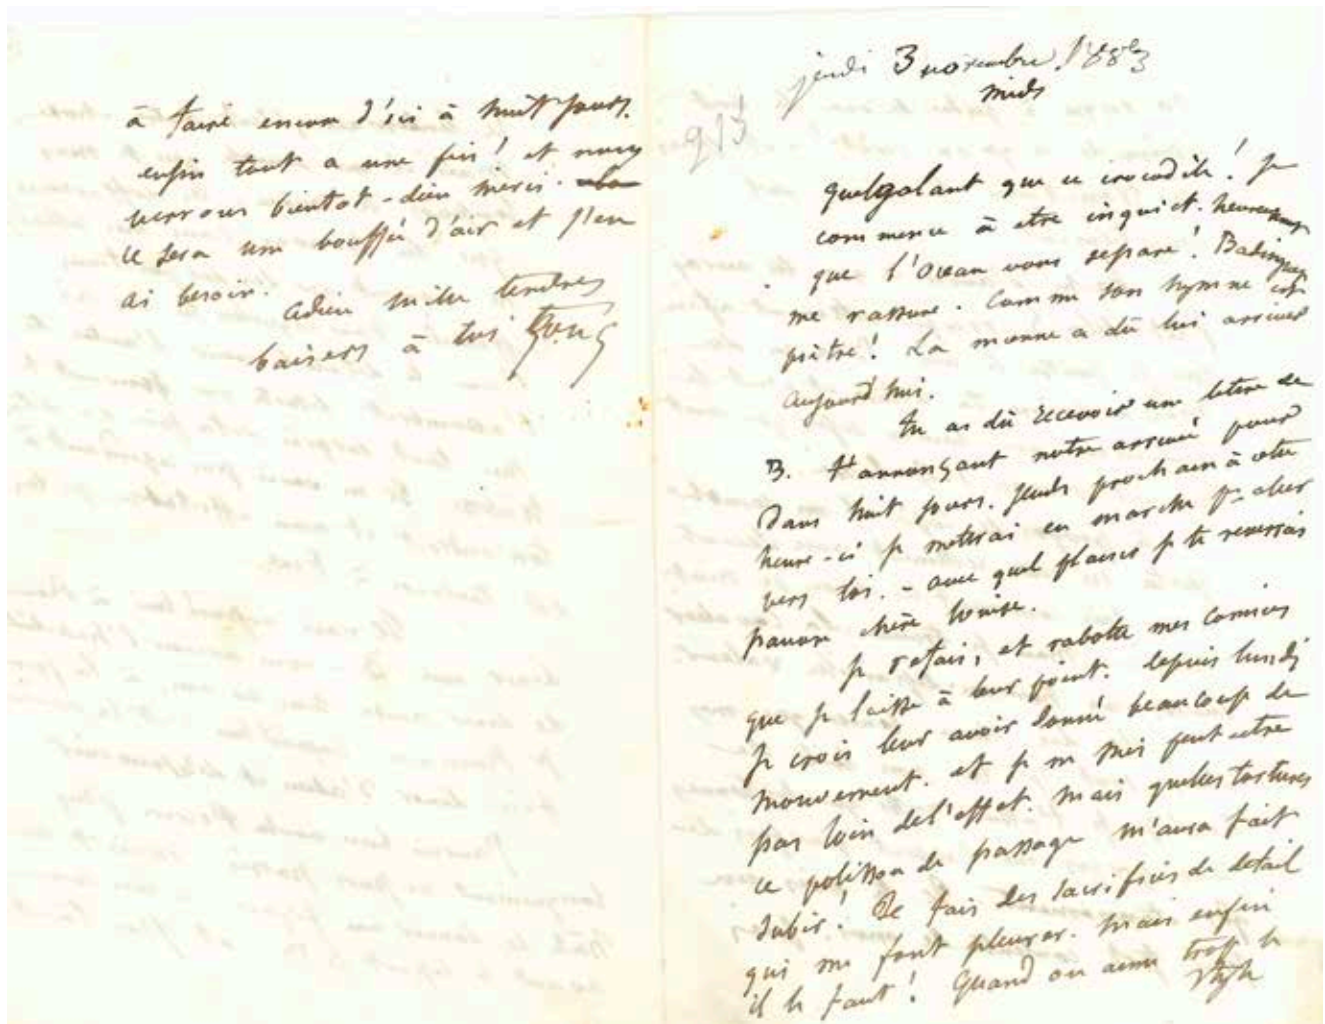 à faire encore d'ici à huit jours.
enfin tout a une fin! et nous
verrons bientot - dieu merci.
ce sera une bouffée d'air et j'en
ai besoin.
adieu mille tendres
baisers à toi
jeudi 3 novembre
midi
913
quel galant que ce crocodile! je
commence à etre inquiet. heureusement
que l'Ocean vous separe! Badinguet
me rassure. Comme son hymne est
piètre! La mienne a dû lui arriver
aujourd'hui.
tu as dû recevoir une lettre de
B. t'annonçant notre arrivée pour
dans huit jours. jeudi prochain à cette
heure-ci je mettrai en marche pr aller
vers toi. - avec quel plaisir je te reverrai
pauvre chère Louise.
je refais, et rabotte mes comices
que je laisse à leur point. depuis lundi
je crois leur avoir donné beaucoup de
mouvement. et je ne suis peut-etre
pas loin de l'effet. mais quelles tortures
ce polisson de passage m'aura fait
subir! Je fais des sacrifices de detail
qui me font pleurer. mais enfin
il le faut! Quand on aime trop le
style